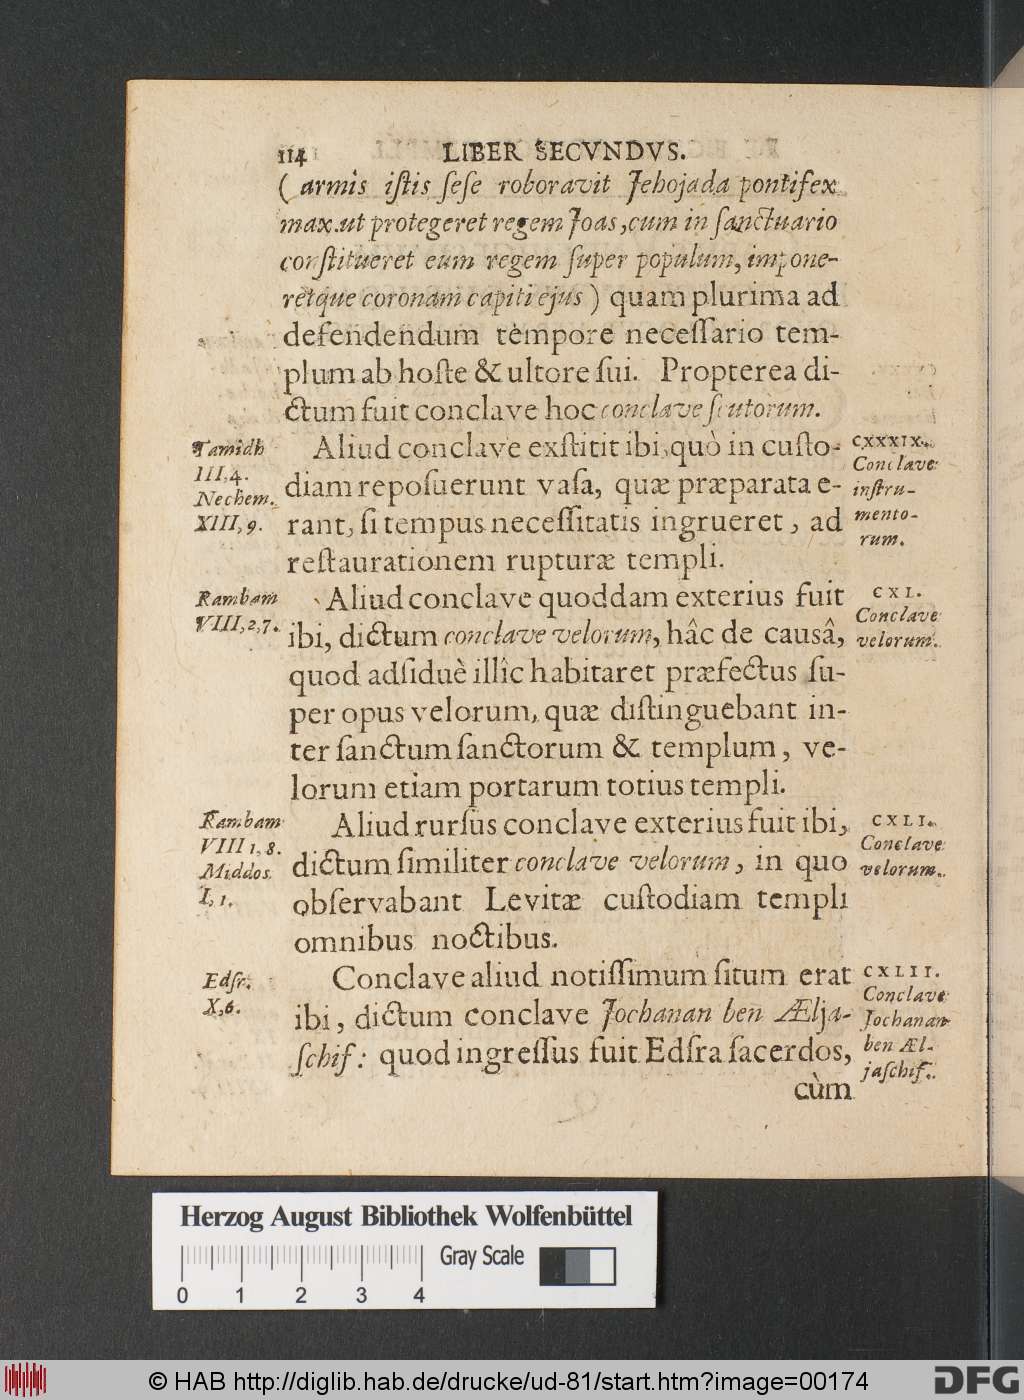 114 LIBER SECVNDVS.
(armis iſtis ſeſe roboravit Jehojada pontifex
max. ut protegeret regem Joas, cum in ſanctuario
conſtitueret eum regem ſuper populum, impone-
retque coronam capiti ejus) quam plurima ad
defendendum tempore neceſſario tem-
plum ab hoſte & ultore ſui. Propterea di-
ctum fuit conclave hoc conclave ſcutorum.
Tamidh
III, 4.
Nechem.
XIII, 9.
Aliud conclave exſtitit ibi, quò in cuſto-
diam repoſuerunt vaſa, quæ præparata e-
rant, ſi tempus neceſſitatis ingrueret, ad
reſtaurationem rupturæ templi.
CXXXIX.
Conclave
inſtru-
mento-
rum.
Rambam
VIII, 2, 7.
Aliud conclave quoddam exterius fuit
ibi, dictum conclave velorum, hâc de causâ,
quod adſiduè illîc habitaret præfectus ſu-
per opus velorum, quæ diſtinguebant in-
ter ſanctum ſanctorum & templum, ve-
lorum etiam portarum totius templi.
CXL.
Conclave
velorum.
Rambam
VIII 1, 8.
Middos
I, 1.
Aliud rurſus conclave exterius fuit ibi,
dictum ſimiliter conclave velorum, in quo
obſervabant Levitæ cuſtodiam templi
omnibus noctibus.
CXLI.
Conclave
velorum.
Edſr.
X, 6.
Conclave aliud notiſſimum ſitum erat
ibi, dictum conclave Jochanan ben Ælja-
ſchif: quod ingreſſus fuit Edſra ſacerdos,
cùm
CXLII.
Conclave
Jochanan
ben Æl-
jaſchif.
Herzog August Bibliothek Wolfenbüttel
Gray Scale
0 1 2 3 4
© HAB http://diglib.hab.de/drucke/ud-81/start.htm?image=00174
DFG